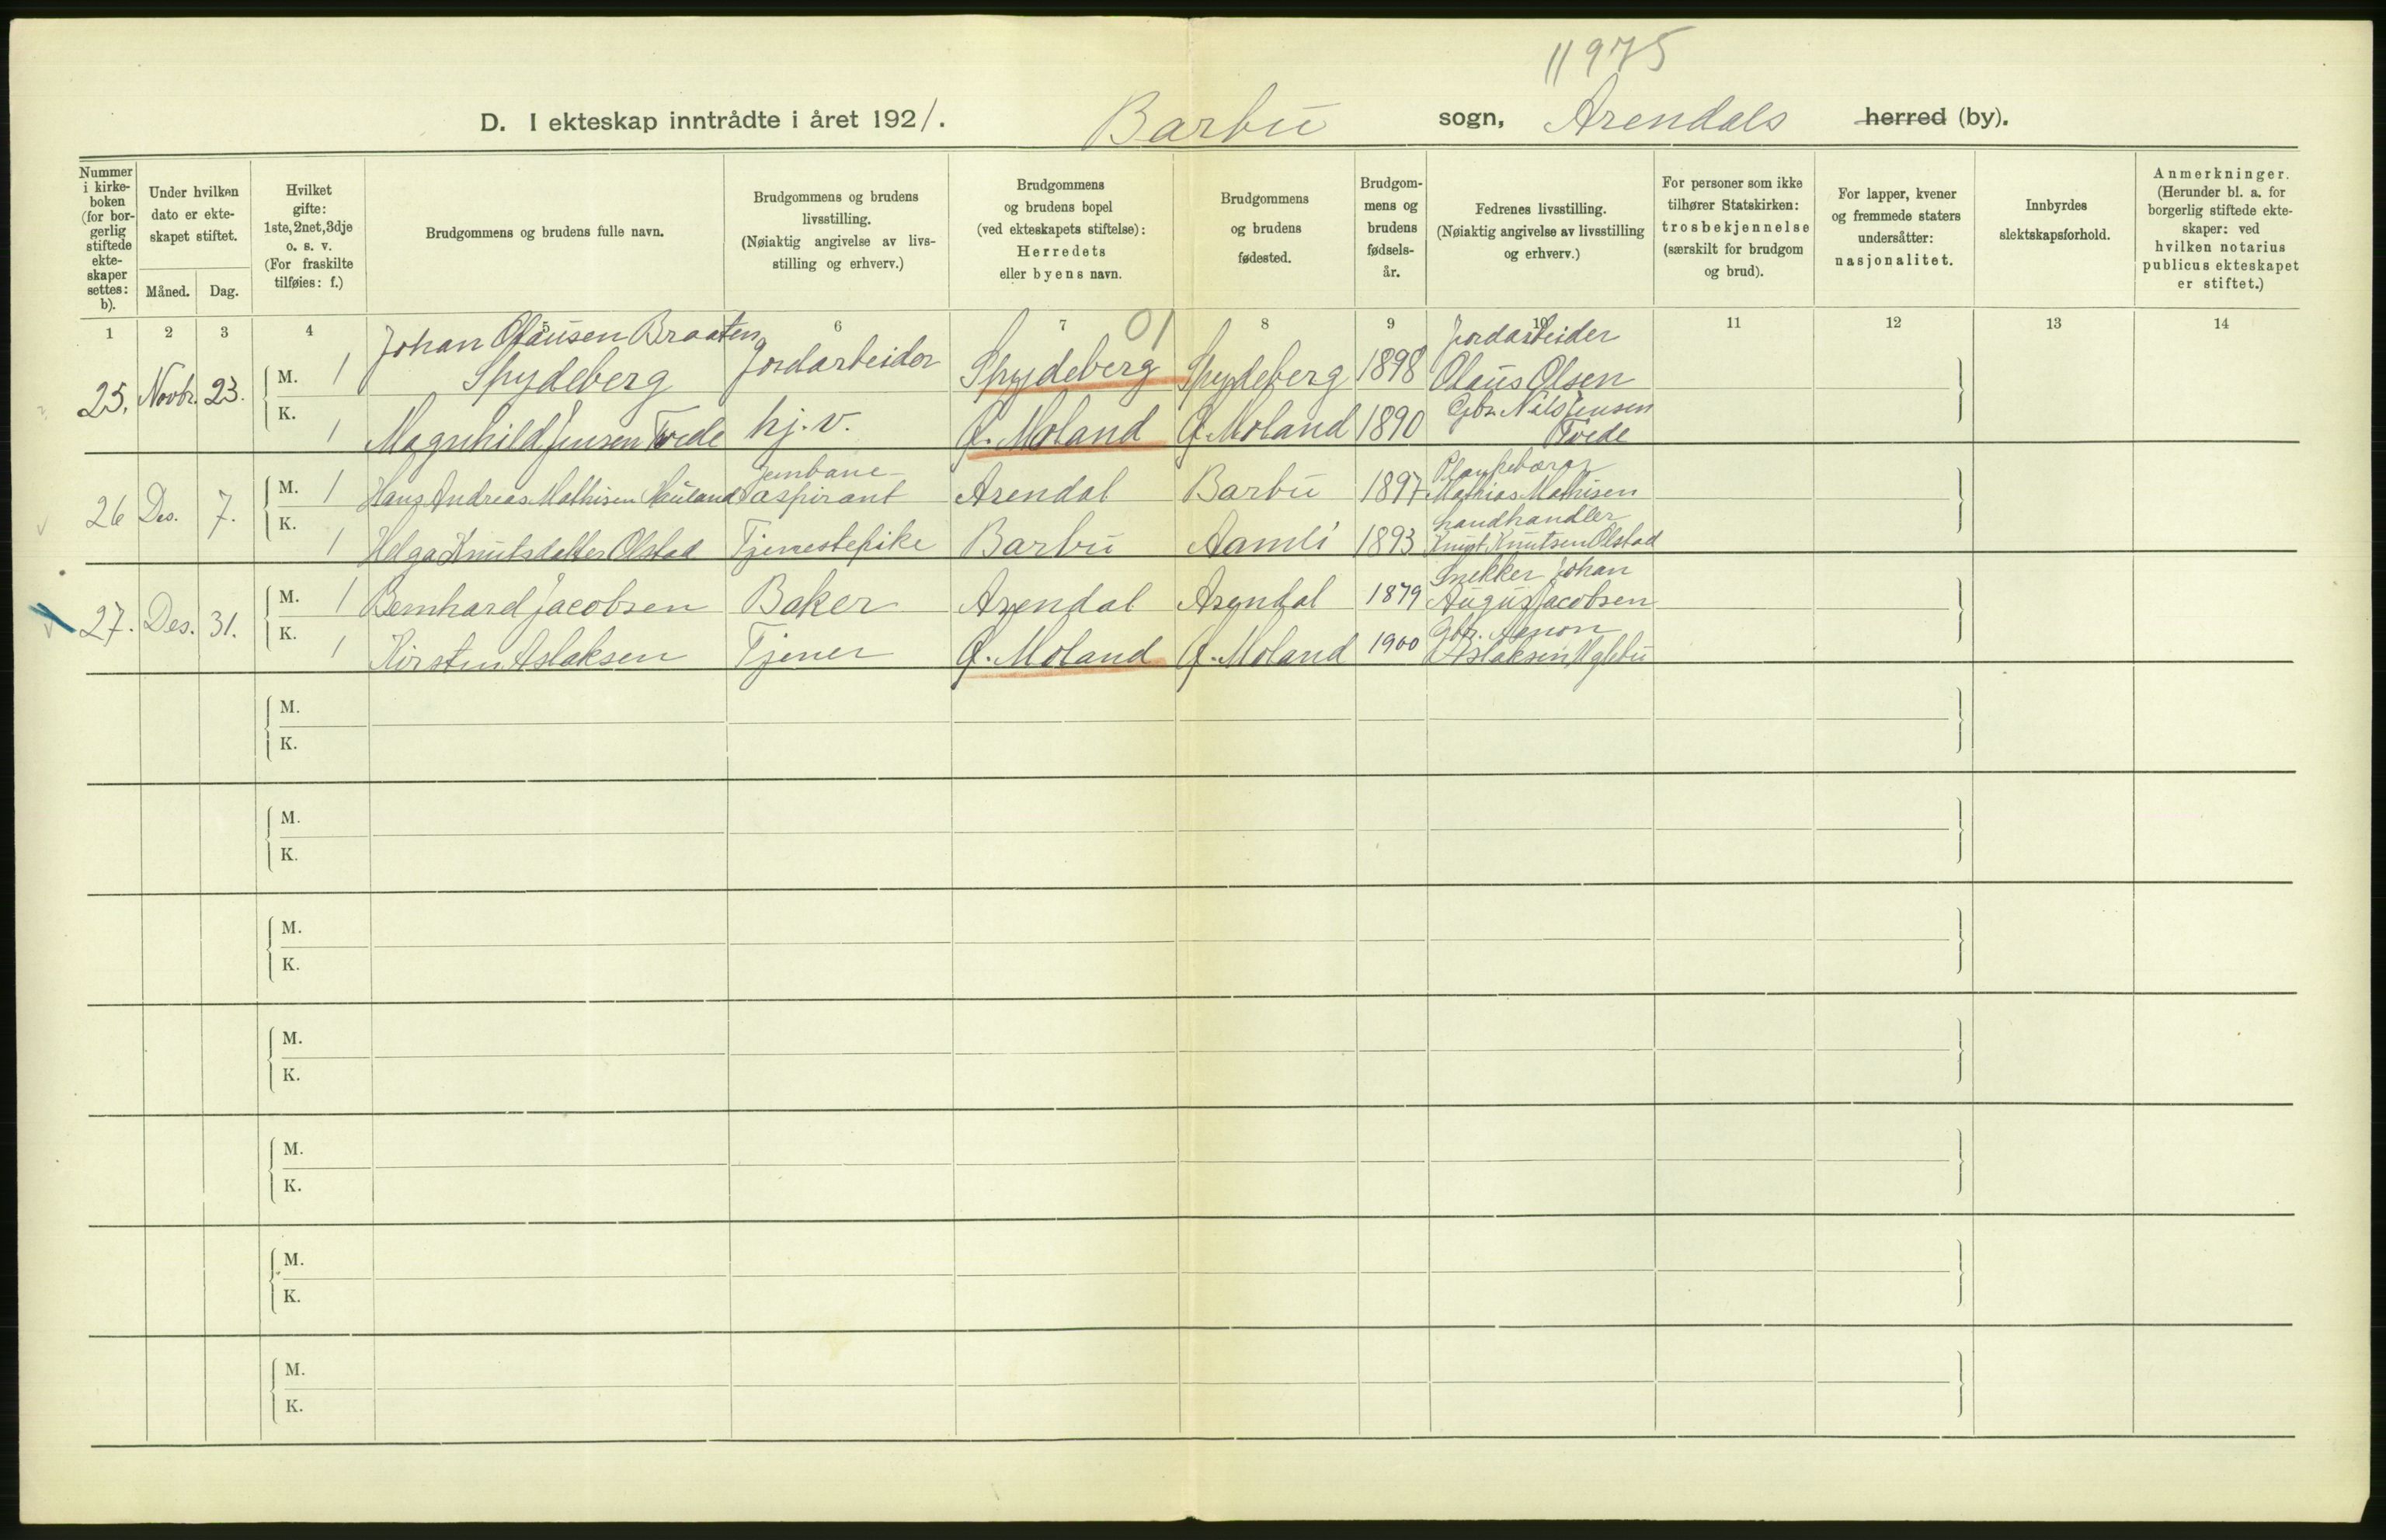 11975
D. I ekteskap inntrådte i året 1921. Barbu sogn, Arendals herred (by).
Nummer i kirke-boken (for bor-gerlig stiftede ekte-skaper settes: b).
Under hvilken dato er ekte-skapet stiftet.
Måned. Dag.
Hvilket gifte: 1ste, 2net, 3dje o. s. v. (For fraskilte tilføies: f.)
Brudgommens og brudens fulle navn.
Brudgommens og brudens livsstilling. (Nøiaktig angivelse av livs-stilling og erhverv.)
Brudgommens og brudens bopel (ved ekteskapets stiftelse): Herredets eller byens navn.
Brudgommens og brudens fødested.
Brudgom-mens og brudens fødsels-år.
Fedrenes livsstilling. (Nøiaktig angivelse av livsstilling og erhverv.)
For personer som ikke tilhører Statskirken: trosbekjennelse (særskilt for brudgom og brud).
For lapper, kvener og fremmede staters undersåtter: nasjonalitet.
Innbyrdes slektskapsforhold.
Anmerkninger. (Herunder bl. a. for borgerlig stiftede ekte-skaper: ved hvilken notarius publicus ekteskapet er stiftet.)
1 2 3 4 5 6 7 8 9 10 11 12 13 14
01
25. Novbr. 23. M. 1 Johan Olausen Braaten Spydeberg Jordarbeider Spydeberg Spydeberg 1898 Jordarbeider Olaus Olsen
K. 1 Magnhild Jensen Tvede hj. v. Ø. Moland Ø. Moland 1890 Gbr. Nils Jensen Tvede
26 Des. 7. M. 1 Hans Andreas Mathisen Hauland Jernbane-aspirant Arendal Barbu 1897 Plankebærer Mathias Mathisen
K. 1 Helga Knutsdatter Olstad Tjenestepike Barbu Aamli 1893 Landhandler Knut Knutsen Olstad
27. Des. 31. M. 1 Bernhard Jacobsen Baker Arendal Arendal 1879 Snekker Johan August Jacobsen
K. 1 Kirsten Aslaksen Tjener Ø. Moland Ø. Moland 1900 Gbr. Aanon Aslaksen
M.
K.
M.
K.
M.
K.
M.
K.
M.
K.
M.
K.
M.
K.